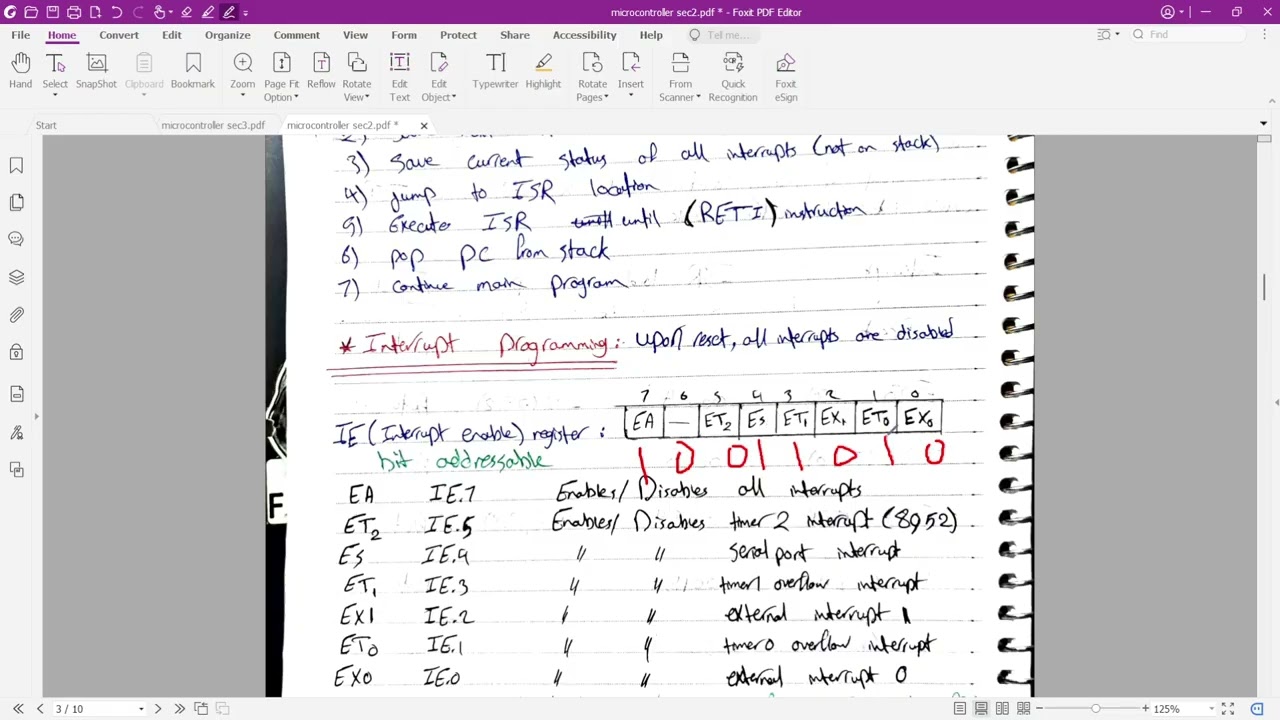 microcontroller sec2.pdf * - Foxit PDF Editor
File Home Convert Edit Organize Comment View Form Protect Share Accessibility Help Tell me... Find
Hand Select SnapShot Clipboard Bookmark Zoom Page Fit Option Reflow Rotate View Edit Text Edit Object Typewriter Highlight Rotate Pages Insert From Scanner Quick Recognition Foxit eSign
Start microcontroller sec3.pdf microcontroller sec2.pdf *
3) Save current status of all interrupts (not on stack)
4) jump to ISR location
5) Execute ISR until (RETI) instruction
6) pop PC from stack
7) Continue main program
* Interrupt Programming: upon reset, all interrupts are disabled
7 6 5 4 3 2 1 0
IE (Interrupt enable) register: EA — ET2 ES ET1 EX1 ET0 EX0
bit addressable 1 0 0 1 1 0 1 0
EA IE.7 Enables/Disables all interrupts
ET2 IE.5 Enables/Disables timer 2 interrupt (8952)
ES IE.4 " " serial port interrupt
ET1 IE.3 " " timer1 overflow interrupt
EX1 IE.2 " " external interrupt 1
ET0 IE.1 " " timer0 overflow interrupt
EX0 IE.0 " " external interrupt 0
3 / 10 125%